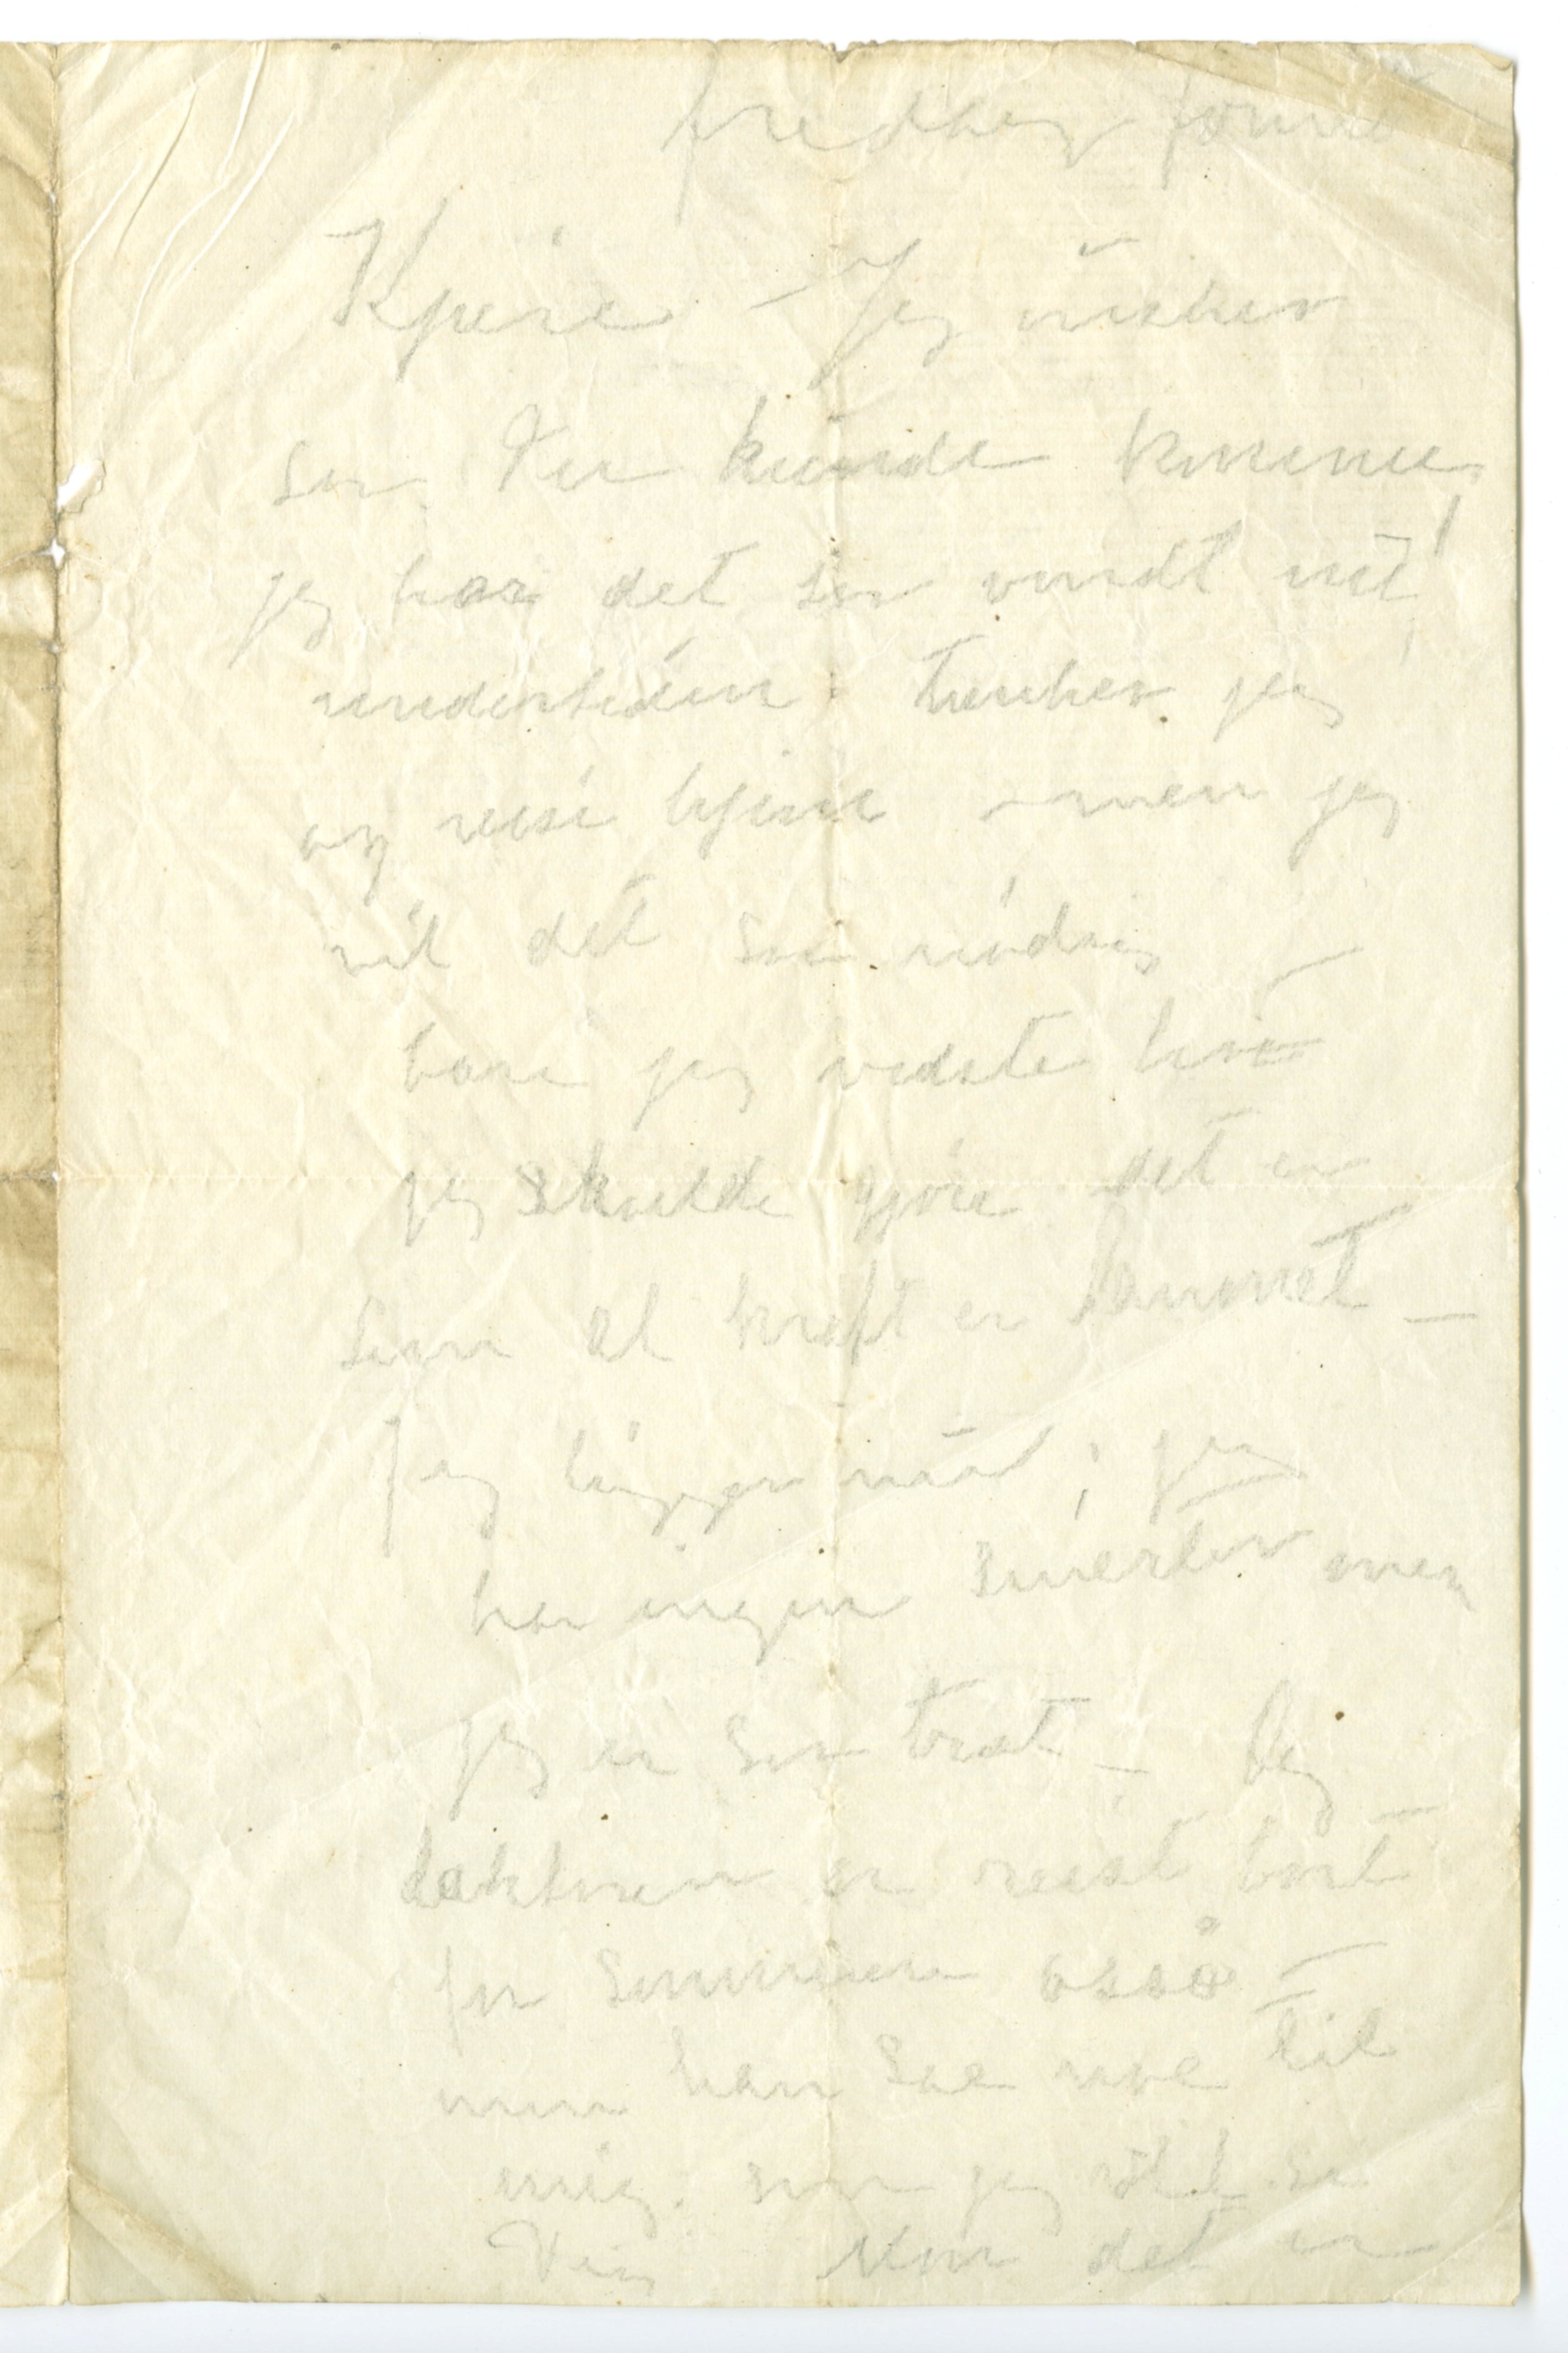 fredag form
Kjære – Jeg ønsker
som Du kunde komme,
jeg har det så vondt nu!
undertiden tænker jeg
og reise hjem – men jeg
vil det så nødig –
bare jeg vidste hva
jeg skulde gjøre det er
som al kraft er lammet –
Jeg ligger nåt; jeg
har ingen smerter men
jeg er så træt – Og
doktoren er reist bort
for sommeren osså –
men han sae noe til
mig. som jeg vilde si
Dig Kom det er